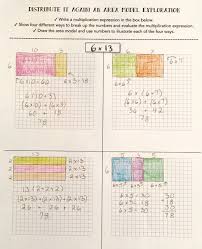 DISTRIBUTE IT AGAIN! AN AREA MODEL EXPLORATION
✓ Write a multiplication expression in the box below.
✓ Show four different ways to break up the numbers and evaluate the multiplication expression.
✓ Draw the area model and use numbers to illustrate each of the four ways.
6×13
10 3
6
6×10 6×3=18
6(10+3)
(6×10)+(6×3)
60 + 18
78
6
6×7
6(6+7)
(6×6)+(6×7)
36 + 42
78
13
2 2×13
2
2
13(2+2+2)
26 + 26 + 26
78
5 5 3
6
6×5 6×5
6×5=30
6×5=30
6×3=18
30
30
18
78